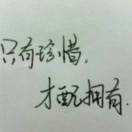 只有珍惜,
才配拥有.